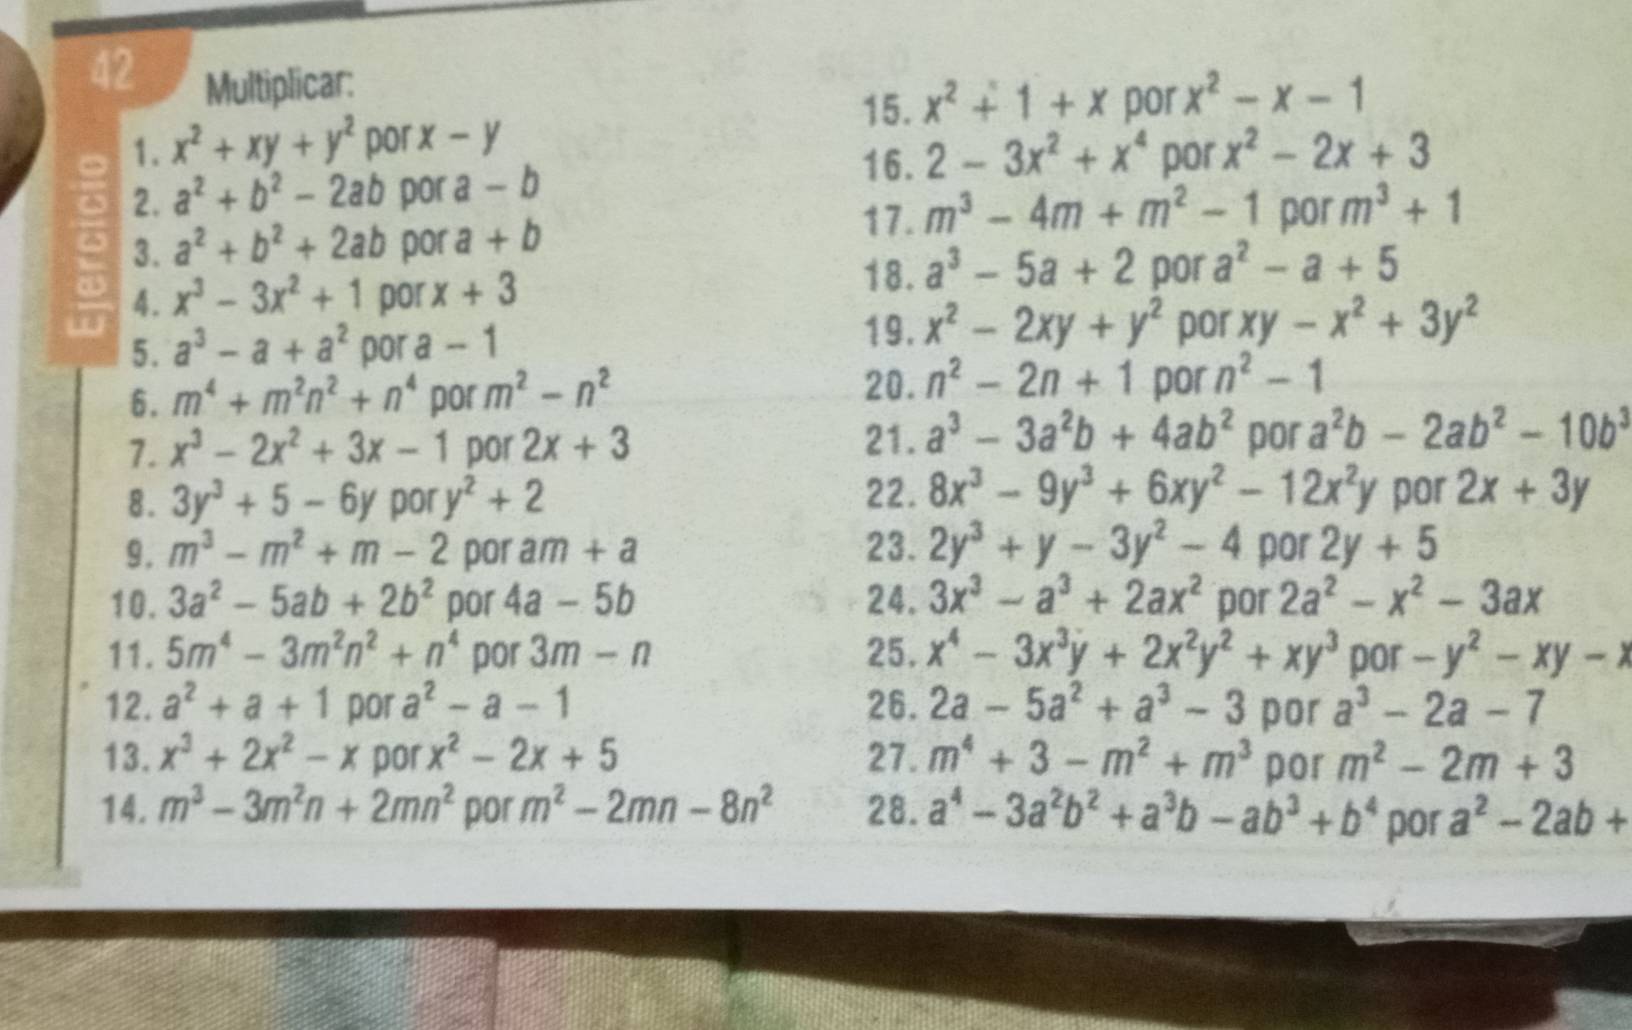 42
Ejercicio
Multiplicar:
1. x² + xy + y² por x − y
2. a² + b² − 2ab por a − b
3. a² + b² + 2ab por a + b
4. x³ − 3x² + 1 por x + 3
5. a³ − a + a² por a − 1
6. m⁴ + m²n² + n⁴ por m² − n²
7. x³ − 2x² + 3x − 1 por 2x + 3
8. 3y³ + 5 − 6y por y² + 2
9. m³ − m² + m − 2 por am + a
10. 3a² − 5ab + 2b² por 4a − 5b
11. 5m⁴ − 3m²n² + n⁴ por 3m − n
12. a² + a + 1 por a² − a − 1
13. x³ + 2x² − x por x² − 2x + 5
14. m³ − 3m²n + 2mn² por m² − 2mn − 8n²
15. x² + 1 + x por x² − x − 1
16. 2 − 3x² + x⁴ por x² − 2x + 3
17. m³ − 4m + m² − 1 por m³ + 1
18. a³ − 5a + 2 por a² − a + 5
19. x² − 2xy + y² por xy − x² + 3y²
20. n² − 2n + 1 por n² − 1
21. a³ − 3a²b + 4ab² por a²b − 2ab² − 10b³
22. 8x³ − 9y³ + 6xy² − 12x²y por 2x + 3y
23. 2y³ + y − 3y² − 4 por 2y + 5
24. 3x³ − a³ + 2ax² por 2a² − x² − 3ax
25. x⁴ − 3x³y + 2x²y² + xy³ por − y² − xy − x
26. 2a − 5a² + a³ − 3 por a³ − 2a − 7
27. m⁴ + 3 − m² + m³ por m² − 2m + 3
28. a⁴ − 3a²b² + a³b − ab³ + b⁴ por a² − 2ab +